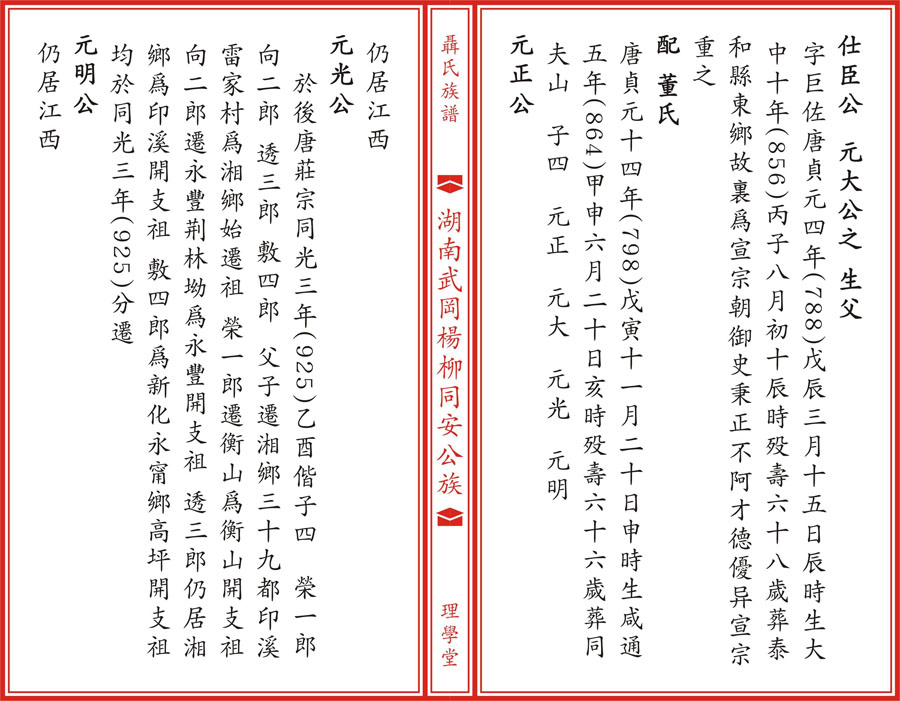 仕臣公　元大公之　生父
字巨佐唐貞元四年(788)戊辰三月十五日辰時生大
中十年(856)丙子八月初十辰時殁壽六十八歲葬泰
和縣東鄉故裏爲宣宗朝御史秉正不阿才德優异宣宗
重之
配　董氏
唐貞元十四年(798)戊寅十一月二十日申時生咸通
五年(864)甲申六月二十日亥時殁壽六十六歲葬同
夫山　子四　元正　元大　元光　元明
元正公
聶氏族譜
湖南武岡楊柳同安公族
理學堂
仍居江西
元光公
於後唐莊宗同光三年(925)乙酉偕子四　榮一郎
向二郎　透三郎　敷四郎　父子遷湘鄉三十九都印溪
雷家村爲湘鄉始遷祖　榮一郎遷衡山爲衡山開支祖
向二郎遷永豐荆林坳爲永豐開支祖　透三郎仍居湘
鄉爲印溪開支祖　敷四郎爲新化永甯鄉高坪開支祖
均於同光三年(925)分遷
元明公
仍居江西